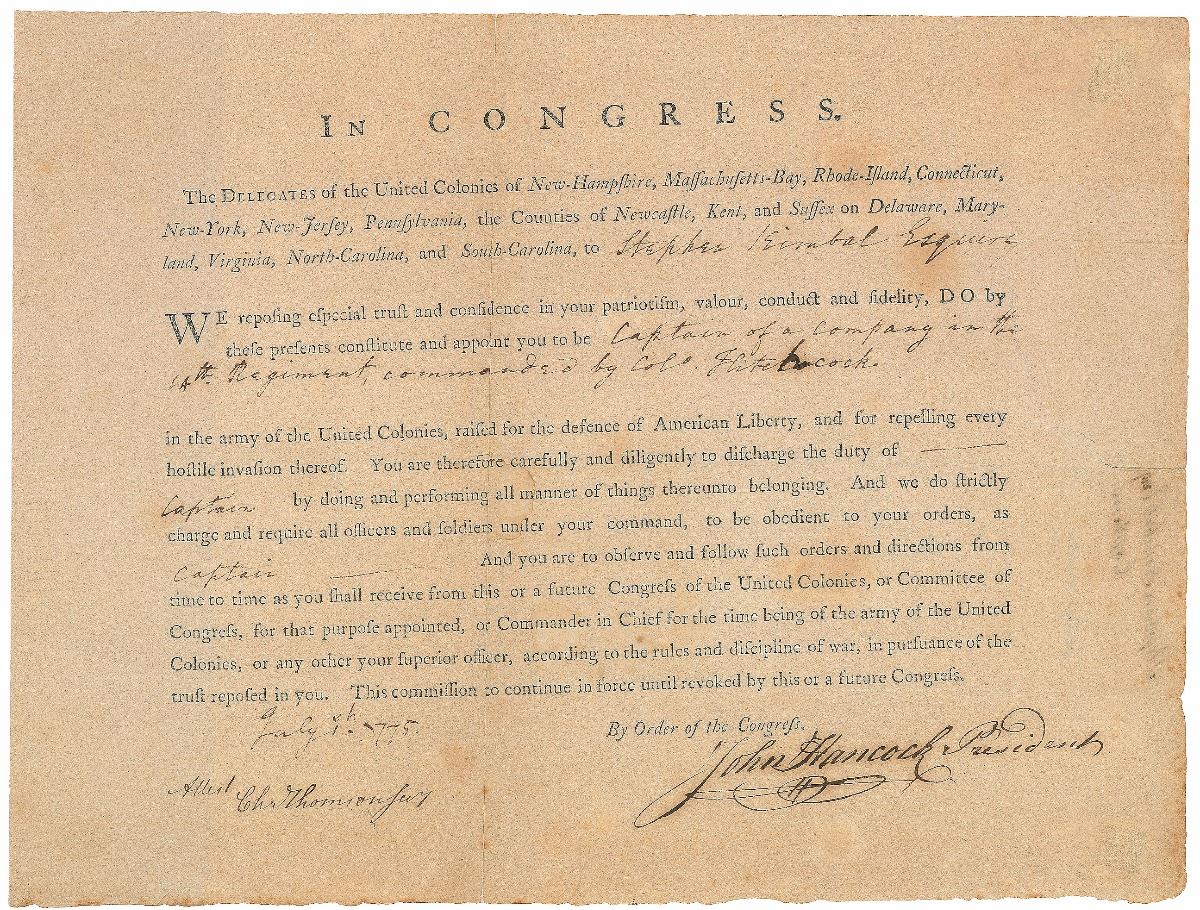 In CONGRESS.
The DELEGATES of the United Colonies of New-Hampſhire, Maſſachuſetts-Bay, Rhode-Iſland, Connecticut,
New-York, New-Jerſey, Pennſylvania, the Counties of Newcaſtle, Kent, and Suſſex on Delaware, Mary-
land, Virginia, North-Carolina, and South-Carolina, to Stephen Kimbal Esquire
WE repoſing eſpecial truſt and confidence in your patriotiſm, valour, conduct and fidelity, DO by
theſe preſents conſtitute and appoint you to be Captain of a Company in the
14th. Regiment, commanded by Colo. Hitchcock.
in the army of the United Colonies, raiſed for the defence of American Liberty, and for repelling every
hoſtile invaſion thereof. You are therefore carefully and diligently to diſcharge the duty of
Captain by doing and performing all manner of things thereunto belonging. And we do ſtrictly
charge and require all officers and ſoldiers under your command, to be obedient to your orders, as
Captain And you are to obſerve and follow ſuch orders and directions from
time to time as you ſhall receive from this or a future Congreſs of the United Colonies, or Committee of
Congreſs, for that purpoſe appointed, or Commander in Chief for the time being of the army of the United
Colonies, or any other your ſuperior officer, according to the rules and diſcipline of war, in purſuance of the
truſt repoſed in you. This commiſſion to continue in force until revoked by this or a future Congreſs.
July 1th. 1775.
By Order of the Congreſs.
John Hancock President
Attest Cha Thomson Secy